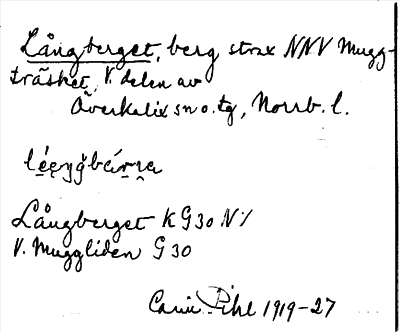 Långberget, berg strax NNV Mugg-
träsket, V. delen av
Överkalix sn o. tg, Norrb. l.
Långberget K G30 N./
V. Muggliden G 30
Carin Pihl 1919-27